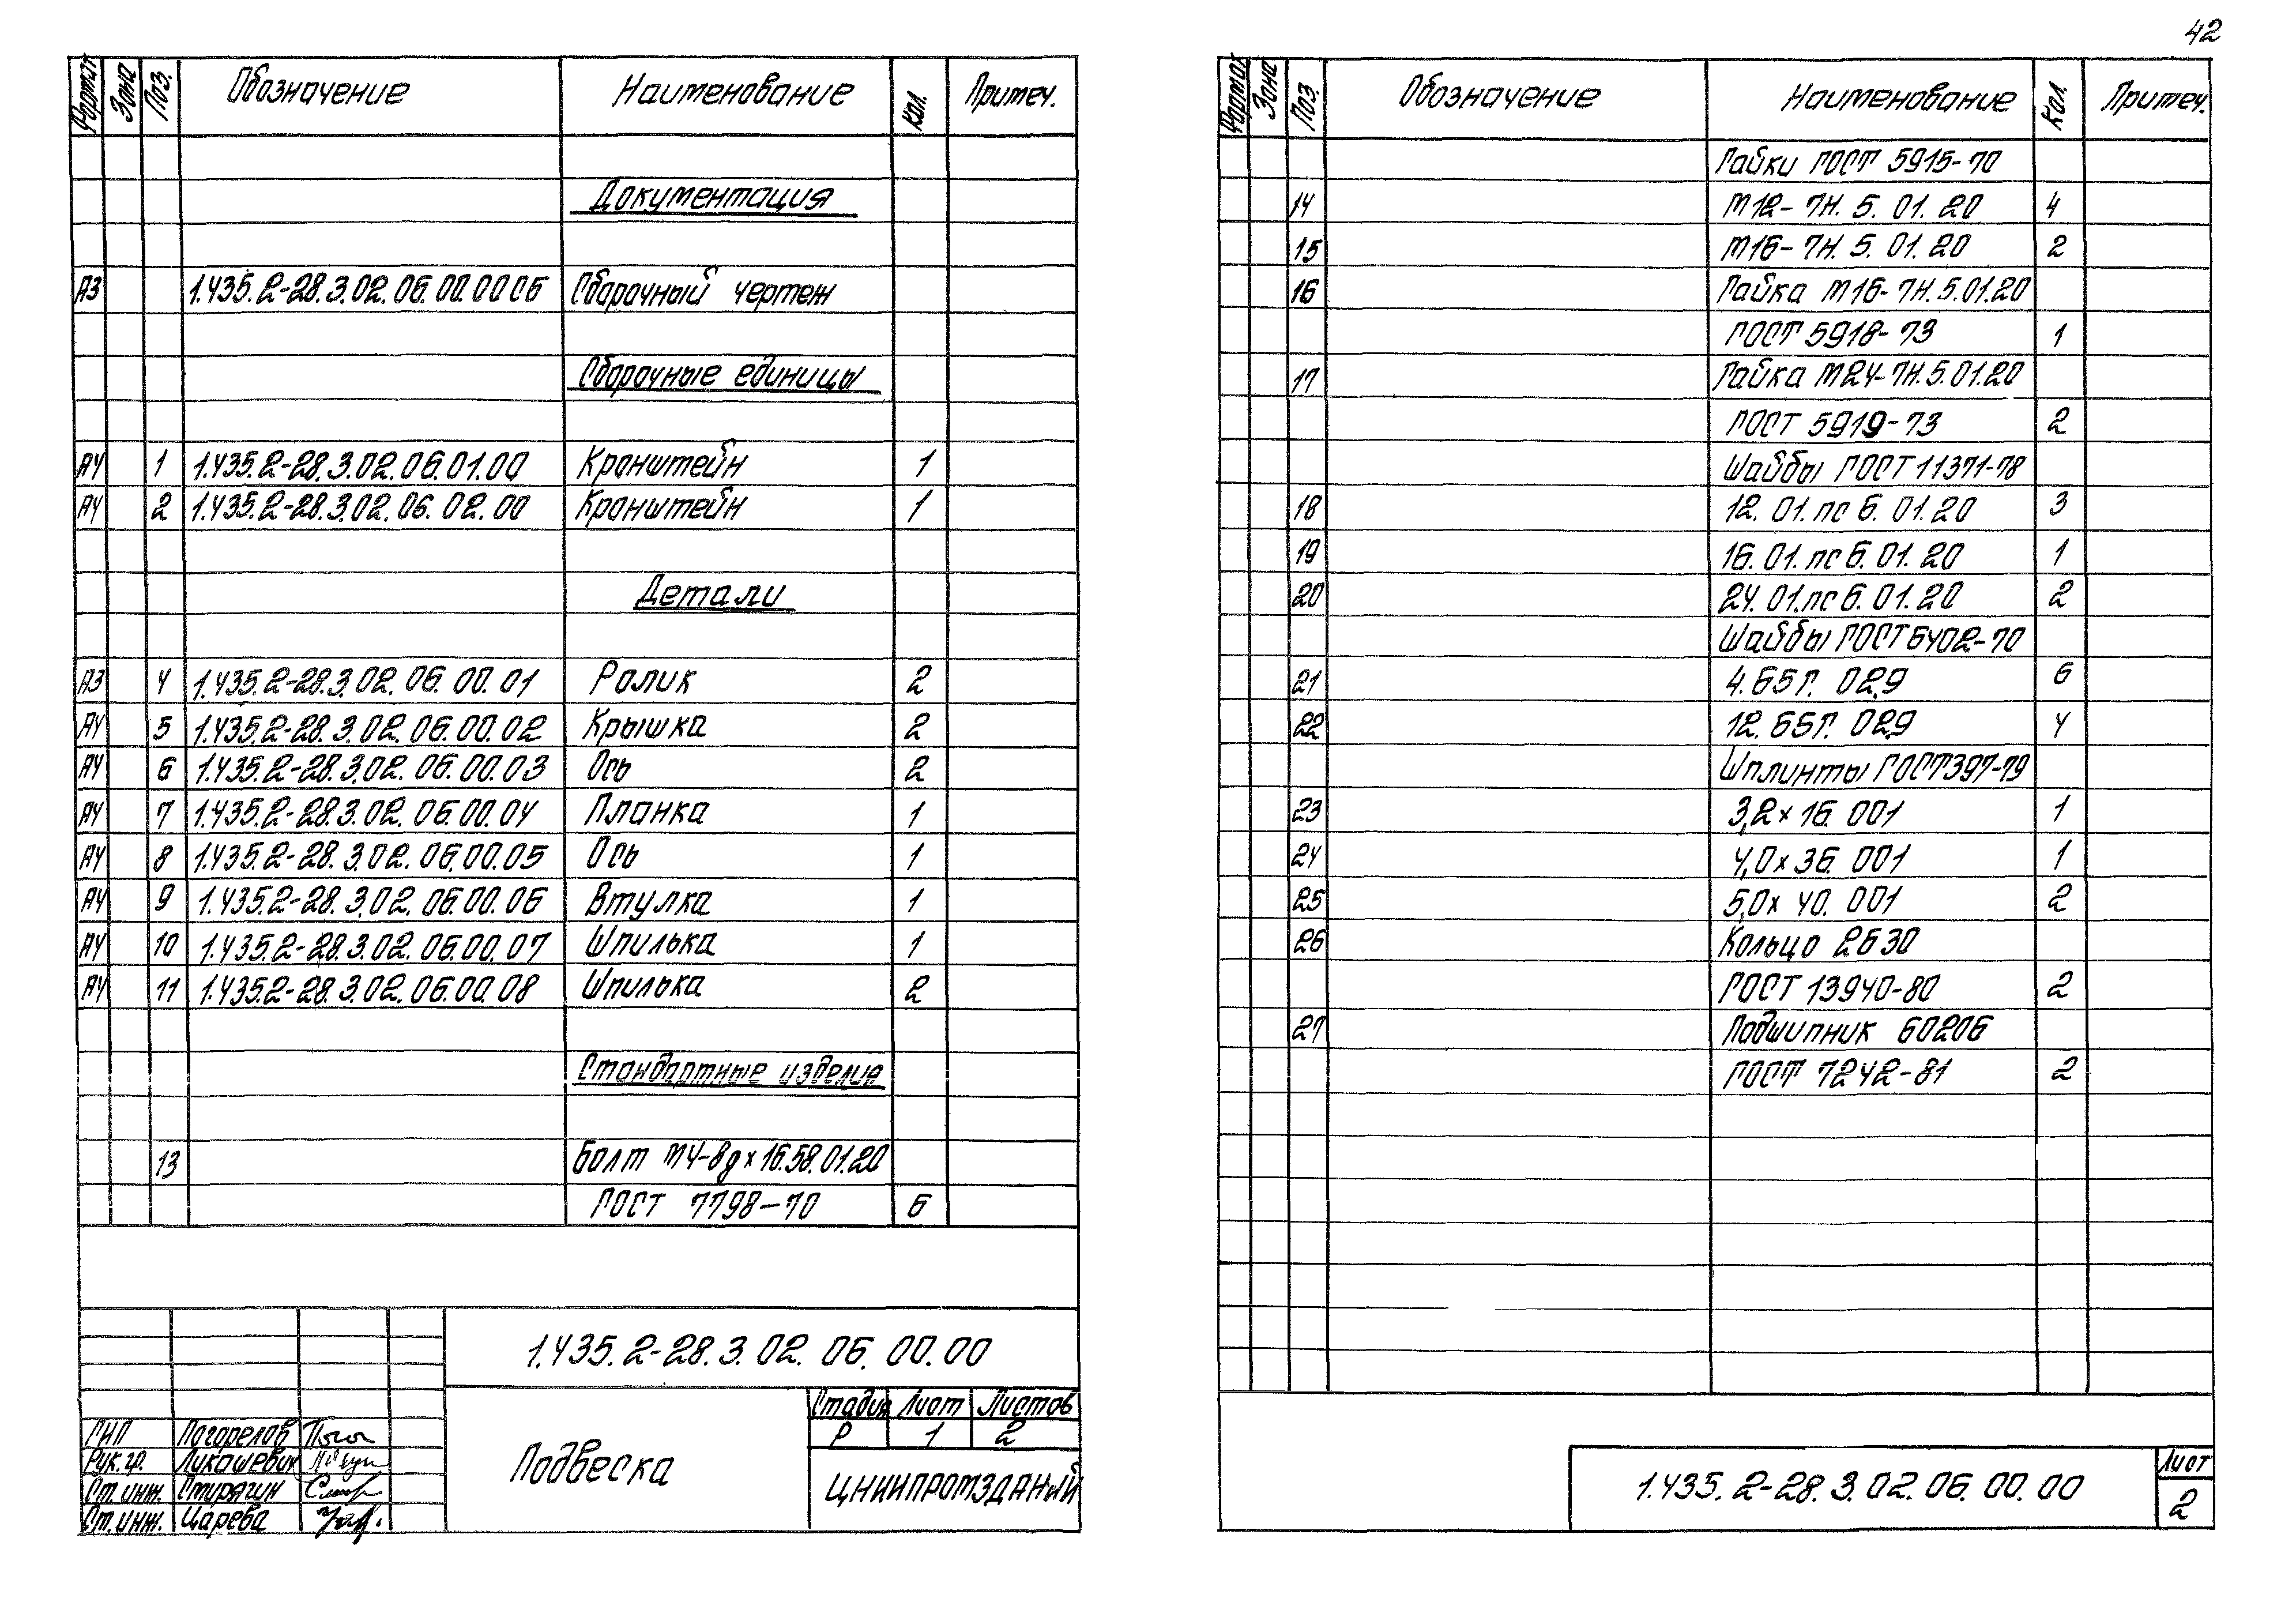 42
Формат Зона Поз. Обозначение Наименование Кол. Примеч.
Документация
А3 1.435.2-28.3.02.06.00.00СБ Сборочный чертеж
Сборочные единицы
А4 1 1.435.2-28.3.02.06.01.00 Кронштейн 1
А4 2 1.435.2-28.3.02.06.02.00 Кронштейн 1
Детали
А3 4 1.435.2-28.3.02.06.00.01 Ролик 2
А4 5 1.435.2-28.3.02.06.00.02 Крышка 2
А4 6 1.435.2-28.3.02.06.00.03 Ось 2
А4 7 1.435.2-28.3.02.06.00.04 Планка 1
А4 8 1.435.2-28.3.02.06.00.05 Ось 1
А4 9 1.435.2-28.3.02.06.00.06 Втулка 1
А4 10 1.435.2-28.3.02.06.00.07 Шпилька 1
А4 11 1.435.2-28.3.02.06.00.08 Шпилька 2
Стандартные изделия
13 Болт М4-8g×16.58.01.20
ГОСТ 7798-70 6
1.435.2-28.3.02.06.00.00
Подвеска
Стадия Лист Листов
Р 1 2
ЦНИИПРОМЗДАНИЙ
ГИП Погорелов
Рук.гр. Лукашевич
Ст.инж. Стирягин
Ст.инж. Царева
Формат Зона Поз. Обозначение Наименование Кол. Примеч.
Гайки ГОСТ 5915-70
14 М12-7Н.5.01.20 4
15 М16-7Н.5.01.20 2
16 Гайка М16-7Н.5.01.20
ГОСТ 5918-73 1
17 Гайка М24-7Н.5.01.20
ГОСТ 5919-73 2
Шайбы ГОСТ 11371-78
18 12.01.пс6.01.20 3
19 16.01.пс6.01.20 1
20 24.01.пс6.01.20 2
Шайбы ГОСТ 6402-70
21 4.65Г.029 6
22 12.65Г.029 4
Шплинты ГОСТ 397-79
23 3,2×16.001 1
24 4,0×36.001 1
25 5,0×40.001 2
26 Кольцо 2Б30
ГОСТ 13940-80 2
27 Подшипник 60206
ГОСТ 7242-81 2
1.435.2-28.3.02.06.00.00
Лист
2